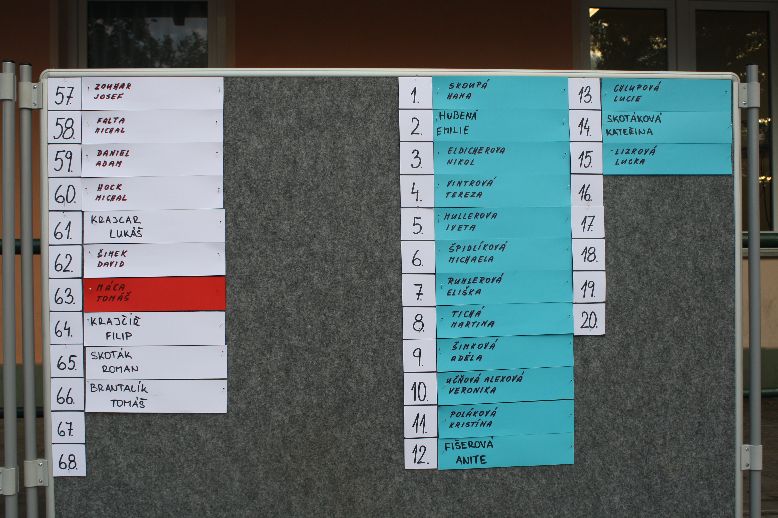 57 ZOUHAR
JOSEF
58. FALTA
MICHAL
59. DANIEL
ADAM
60. HOCK
MICHAL
61. KRAJCAR
LUKÁŠ
62. ŠIMEK
DAVID
63. MÁCA
TOMÁŠ
64. KRAJČIŘ
FILIP
65. SKOTÁK
ROMAN
66. BRANTALÍK
TOMÁŠ
67.
68.
1. SKOUPÁ
HANA
2. HUBENÁ
EMILIE
3. ELDICHEROVA
NIKOL
4. VINTROVÁ
TEREZA
5. MULLEROVA
IVETA
6. ŠPIDLÍKOVÁ
MICHAELA
7. RUHLEROVÁ
ELIŠKA
8. TICHÁ
MARTINA
9. ŠIMKOVÁ
ADÉLA
10. UČŇOVÁ ALEXOVÁ
VERONIKA
11. POLÁKOVÁ
KRISTÍNA
12. FIŠEROVÁ
ANITE
13. CHLUPOVÁ
LUCIE
14. SKOTÁKOVÁ
KATEŘINA
15. LIZROVÁ
LUCKA
16.
17.
18.
19.
20.